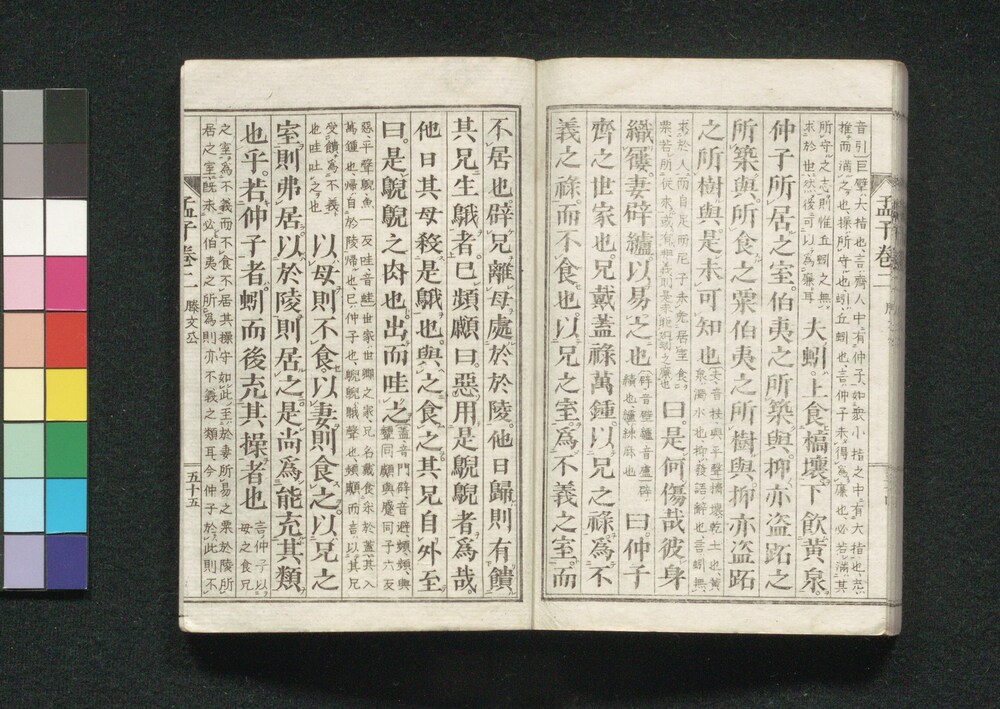 孟子卷二
音引○巨擘大指也言齊人中有仲子如眾小指之中有大指也充
推而滿之也操所守也蚓丘蚓也言仲子未得為廉也必若滿其
所守之志則惟丘蚓之無
求於世然後可以為廉耳
夫蚓上食槁壤下飲黃泉
仲子所居之室伯夷之所築與抑亦盜跖之
所築與所食之粟伯夷之所樹與抑亦盜跖
之所樹與是未可知也
夫音扶與平聲槁壤乾土也黃
泉濁水也抑發語辭也言蚓無
求於人而自足而仲子未免居室食
粟若所從來或有
曰是何傷哉彼身
織屨妻辟纑以易之也
辟音壁纑音盧○辟
績也纑練麻也
曰仲子
齊之世家也兄戴蓋祿萬鍾以兄之祿為不
義之祿而不食也以兄之室為不義之室而
不居也辟兄離母處於於陵他日歸則有饋
其兄生鵝者己頻顣曰惡用是鶃鶃者為哉
他日其母殺是鵝也與之食之其兄自外至
曰是鶃鶃之肉也出而哇之
蓋音閤辟音避頻與
顰同顣與蹙同子六反
惡平聲鶃魚一反哇音蛙○世家世卿之家兄名戴食采於蓋其入
萬鍾也歸自於陵歸也己仲子也鶃鶃鵝聲也頻顣而言以其兄
受饋為不義
也哇吐之也
以母則不食以妻則食之以兄之
室則弗居以於陵則居之是尚為能充其類
也乎若仲子者蚓而後充其操者也
言仲子以
母之食兄
之室為不義而不食不居其操守如此至於妻所易之粟於陵所
居之室既未必伯夷之所為則亦不義之類耳今仲子於此則不
孟子卷二
滕文公
五十五